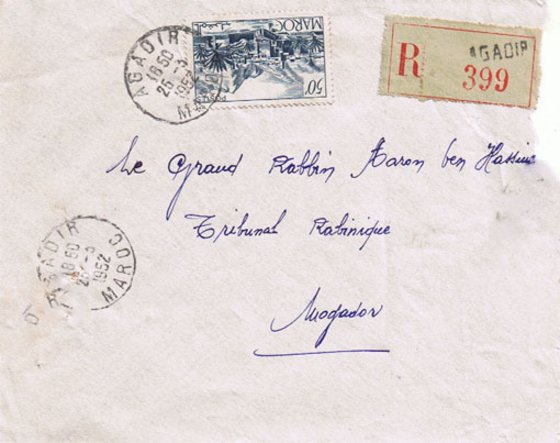 AGADIR
18 50
25 -3
1952
MAROC
MAROC
50F
R
AGADIR
399
Le Grand Rabbin Aaron ben Hassine
Tribunal Rabinique
Mogador
AGADIR
18 50
25 -3
1952
MAROC